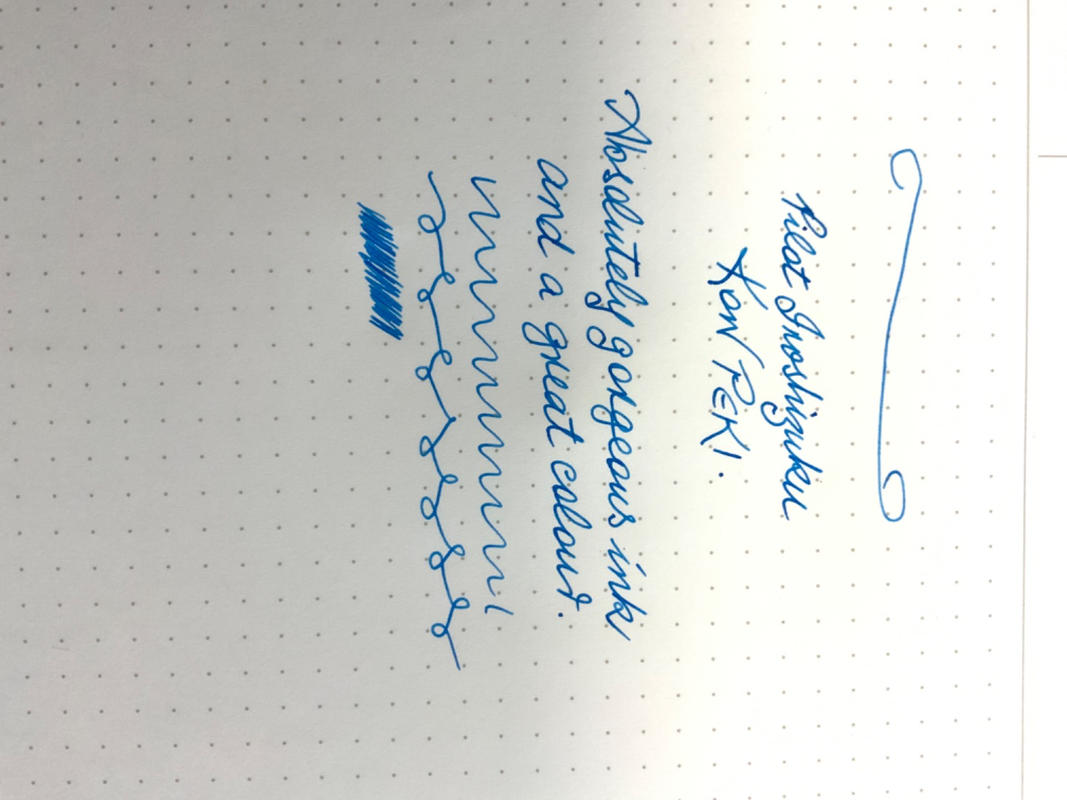 Pilot Iroshizuku
KON PEKI.
Absolutely gorgeous ink
and a great colour.